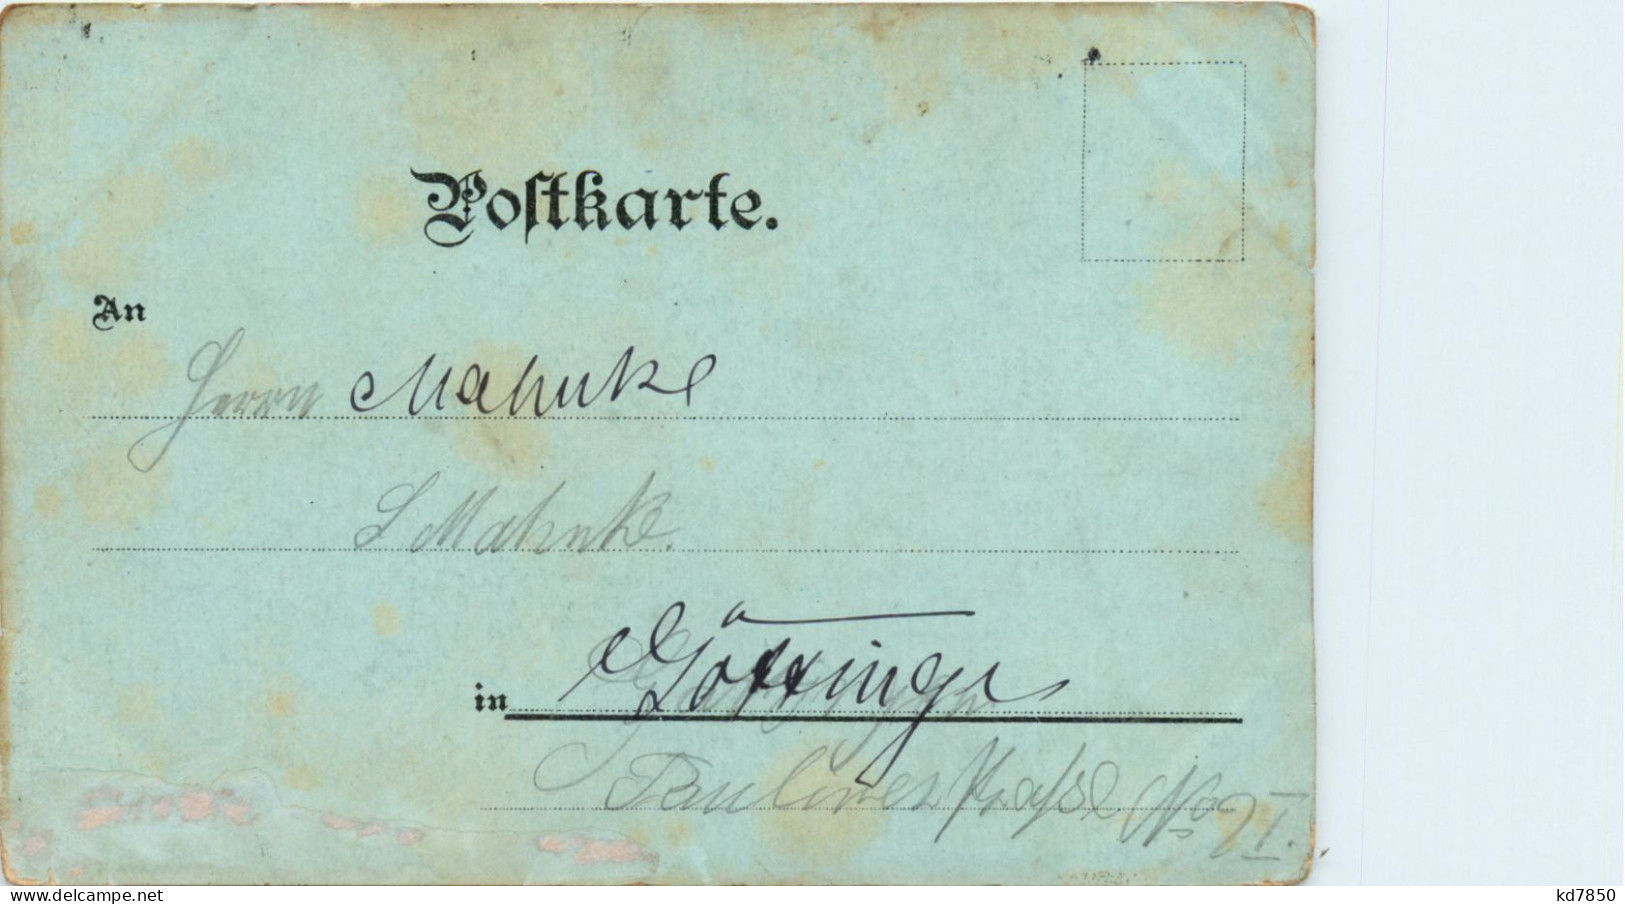 Postkarte.
An
Herrn Mahnke
L Mahnke.
in Göttingen
Paulinerstraße No
delcampe.net
kd7850